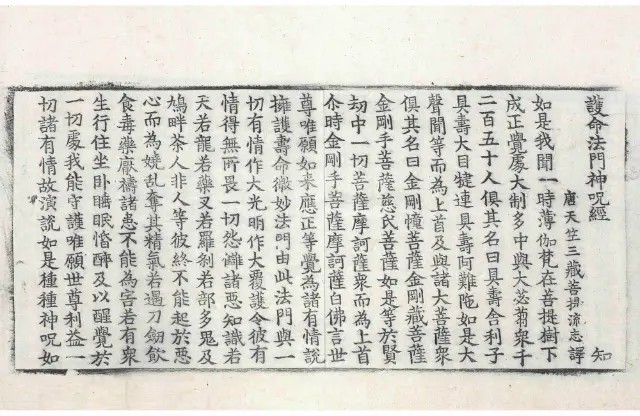 護命法門神呪經
唐天竺三藏菩提流志譯
知
如是我聞一時薄伽梵在菩提樹下
成正覺處大制多中與大苾芻衆千
二百五十人俱其名曰具壽舍利子
具壽大目揵連具壽阿難陁如是大
聲聞等而為上首及與諸大菩薩衆
俱其名曰金剛幢菩薩金剛藏菩薩
金剛手菩薩慈氏菩薩如是等於賢
劫中一切菩薩摩訶薩衆而為上首
尒時金剛手菩薩摩訶薩白佛言世
尊唯願如來應正等覺為諸有情說
擁護壽命微妙法門由此法門與一
切有情作大光明作大覆護令彼有
情得無所畏一切怨讎諸惡知識若
天若龍若藥叉若羅刹若部多鬼及
鳩畔茶人非人等彼終不能起於惡
心而為嬈乱奪其精氣若遇刀劒飲
食毒藥厭禱諸患不能為害若有衆
生行住坐卧睡眠惛醉及以醒覺於
一切處我能守護唯願世尊利益一
切諸有情故演說如是種種神呪如